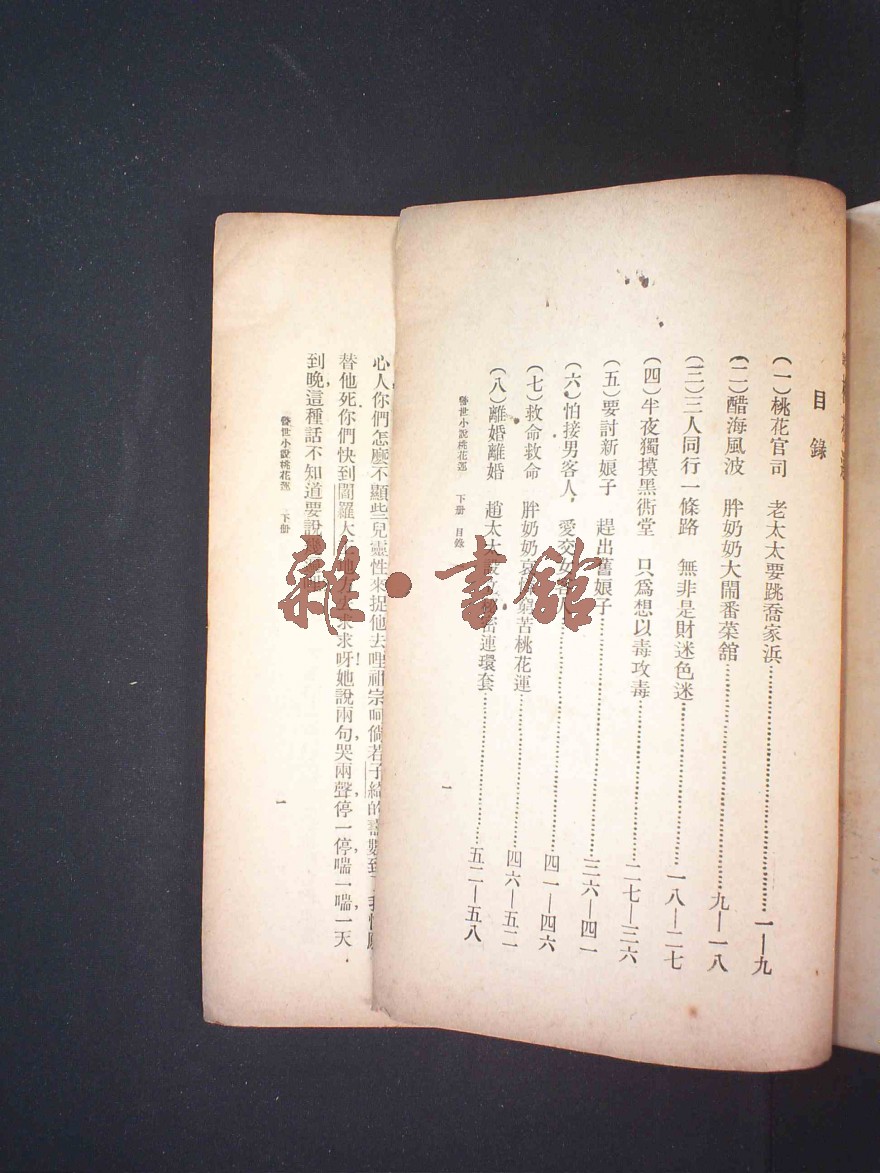 目錄
(一)桃花官司 老太太要跳喬家浜 一—九
(二)醋海風波 胖奶奶大鬧番菜舘 九—一八
(三)三人同行一條路 無非是財迷色迷 一八—二七
(四)半夜獨摸黑衖堂 只爲想以毒攻毒 二七—三六
(五)要討新娘子 趕出舊娘子 三六—四一
(六)怕接男客人 愛交女客人 四一—四六
(七)救命救命 胖奶奶哀 窮苦桃花運 四六—五二
(八)離婚離婚 趙太太 秘密連環套 五二—五八
警世小說桃花運 下册 目錄 一
心人你們怎麽不顯些兒靈性來捉他去哩祖宗呵倘若子綺的壽數到了我情願
替他死你們快到閻羅大 求求呀她說兩句哭兩聲停一停喘一喘一天
到晚這種話不知道要說
警世小說桃花運 下册 一
雜·書館